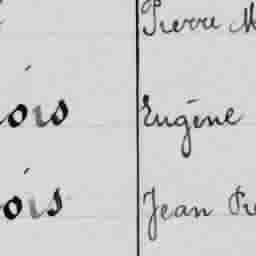 Pierre M
ois Eugène
ois Jean Pie